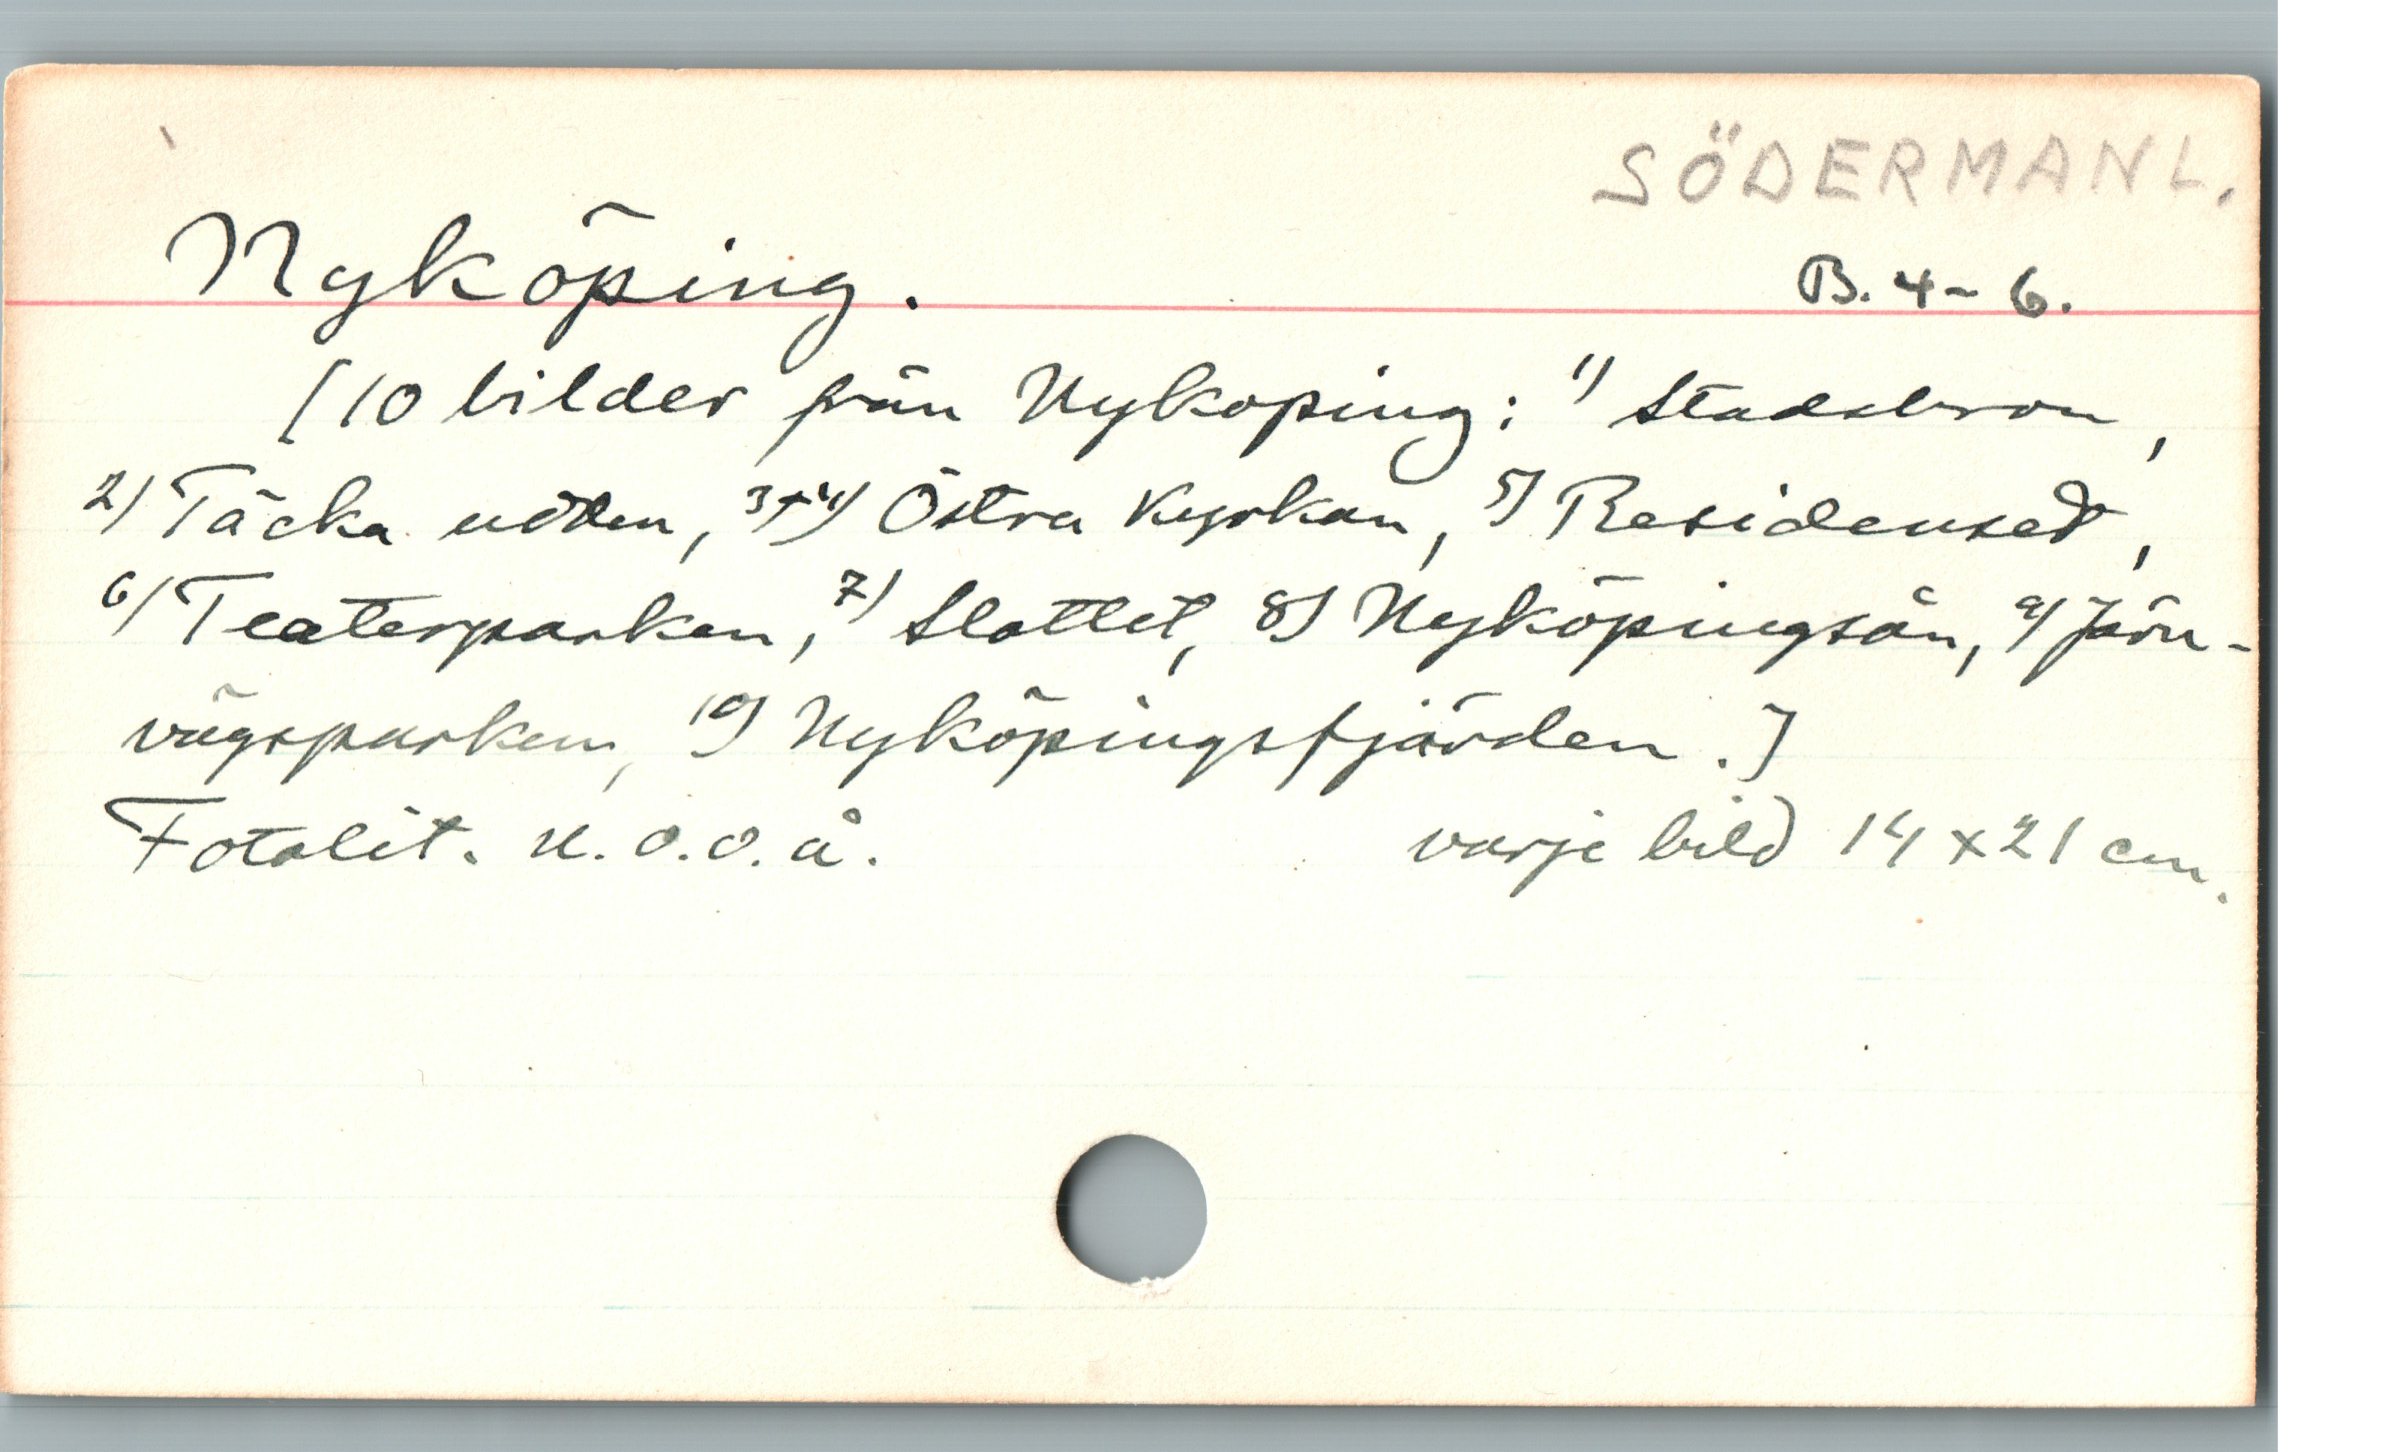 SÖDERMANL.
Nyköping.
B. 4-6.
[10 bilder från Nyköping: 1) Stadsbron,
2) Täcka udden, 3+4) Östra Kyrkan, 5) Residenset,
6) Teaterparken, 7) Slottet, 8) Nyköpingsån, 9) Järn-
vägsparken, 10) Nyköpingsfjärden.]
Fotolit. u.o.o.å. varje bild 14 x 21 cm.